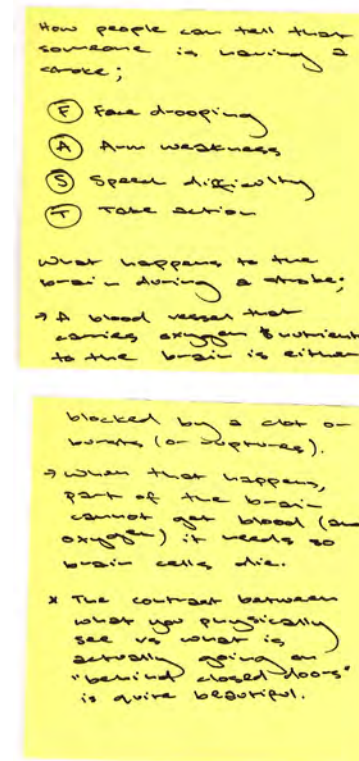 How people can tell that
someone is having a
stroke;
F Face drooping
A Arm weakness
S Speech difficulty
T Take action
What happens to the
brain during a stroke;
→ A blood vessel that
carries oxygen & nutrients
to the brain is either
blocked by a clot or
bursts (or ruptures).
→ When that happens,
part of the brain
cannot get blood (and
oxygen) it needs so
brain cells die.
* The contrast between
what you physically
see vs what is
actually going on
"behind closed doors"
is quite beautiful.